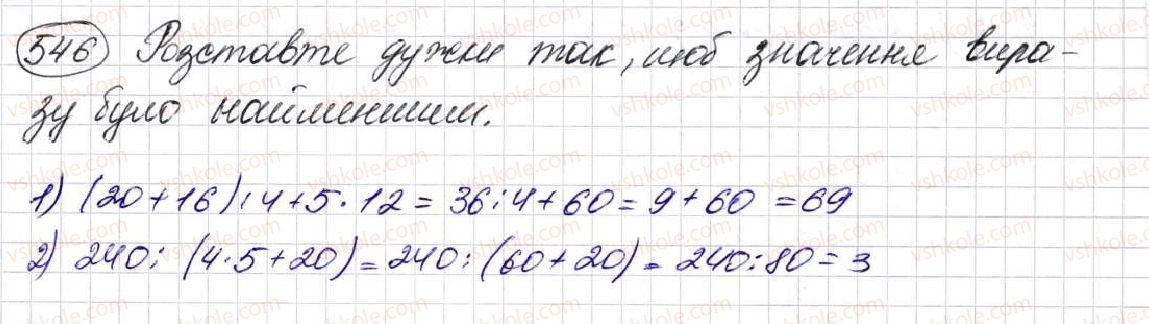 546 Розставте дужки так, щоб значення вира-
зу було найменшим.
1) (20+16):4+5·12=36:4+60=9+60=69
2) 240:(4·5+20)=240:(60+20)=240:80=3